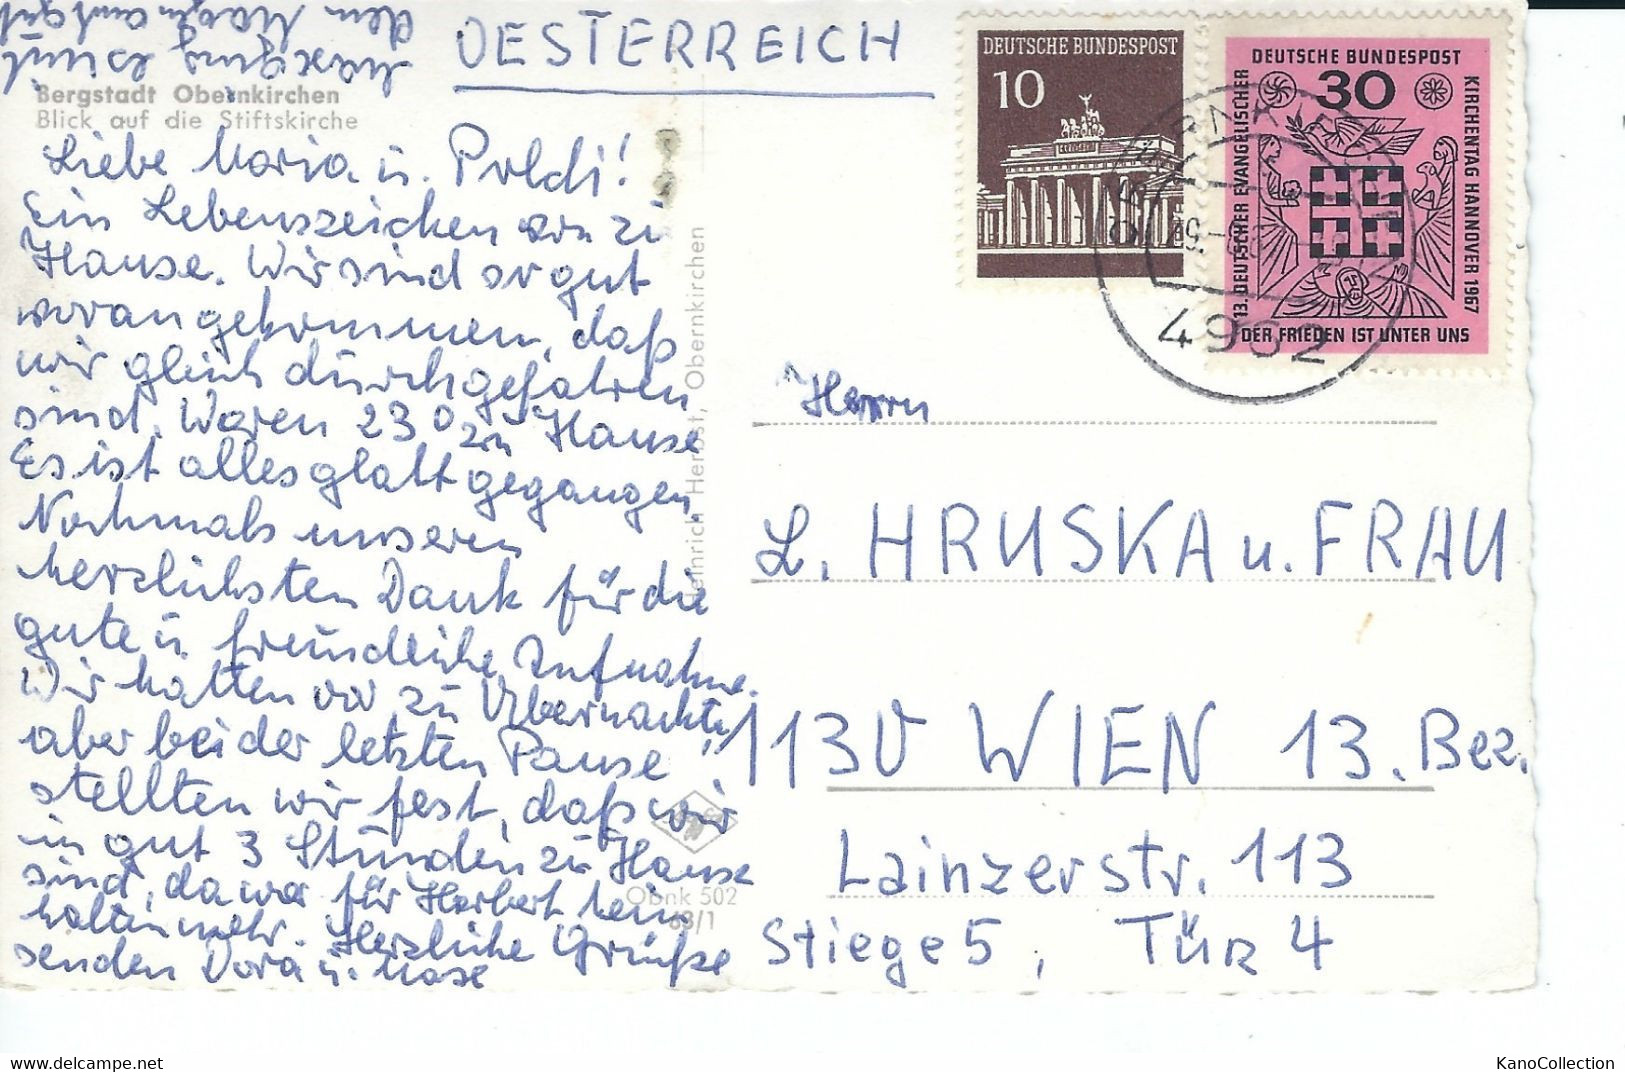 OESTERREICH
Bergstadt Obernkirchen
Blick auf die Stiftskirche
Liebe Maria u. Poldi!
Ein Lebenszeichen von zu
Hause. Wir sind so gut
vorangekommen, daß
wir gleich durchgefahren
sind. Waren 23⁰ zu Hause
Es ist alles glatt gegangen.
Nochmals unseren
herzlichsten Dank für die
gute u. freundliche Aufnahme.
Wir hatten vor zu Übernachten,
aber bei der letzten Pause
stellten wir fest, daß wir
in gut 3 Stunden zu Hause
sind, da war für Herbert kein
halten mehr. Herzliche Grüße
senden Dora u.
dem Magen
Heinrich Herbst, Obernkirchen
Obnk 502
68/1
DEUTSCHE BUNDESPOST
10
DEUTSCHE BUNDESPOST
30
13. DEUTSCHER EVANGELISCHER
KIRCHENTAG HANNOVER 1967
DER FRIEDEN IST UNTER UNS
4962
Herrn
L. HRUSKA u. FRAU
1130 WIEN 13. Bez.
Lainzerstr. 113
Stiege 5, TÜR 4
www.delcampe.net
KanoCollection